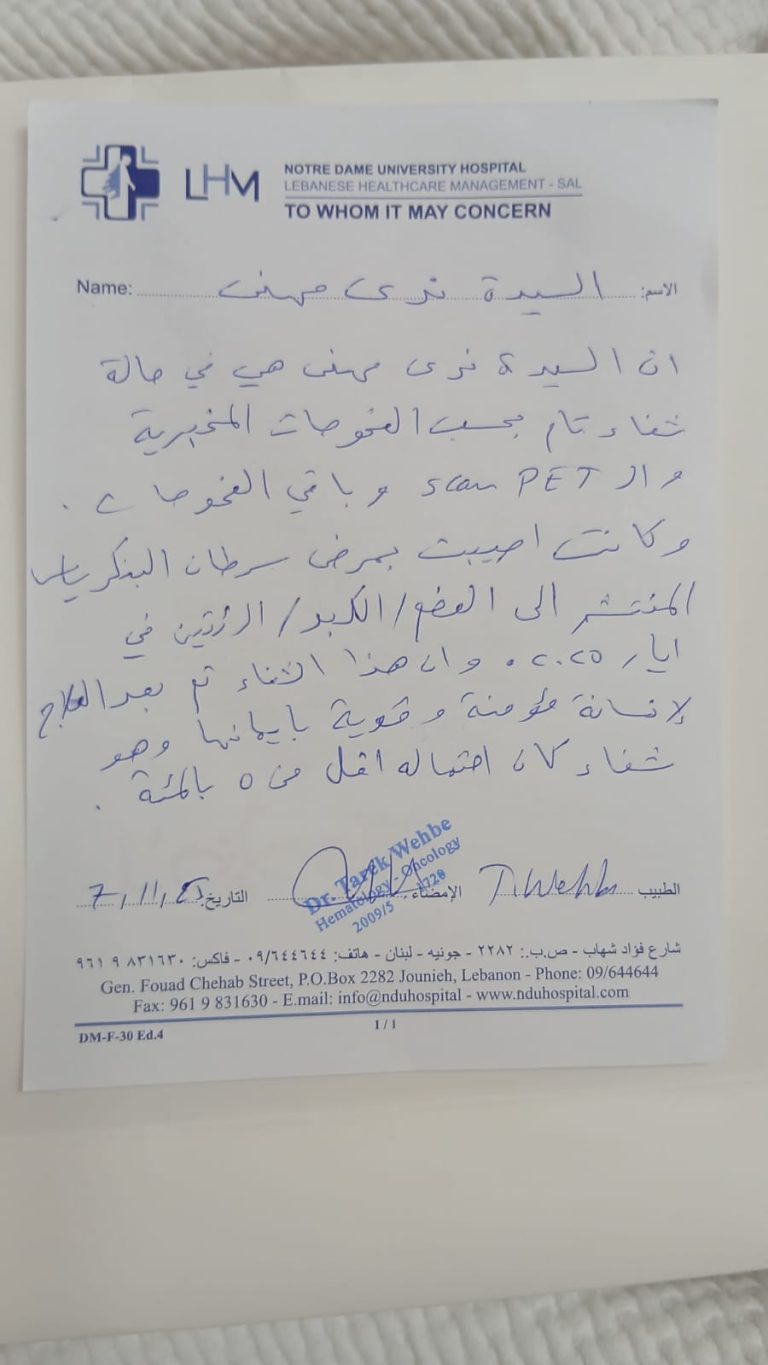 LHM
NOTRE DAME UNIVERSITY HOSPITAL
LEBANESE HEALTHCARE MANAGEMENT - SAL
TO WHOM IT MAY CONCERN
Name: السيدة ندى مهنى الاسم:
ان السيدة ندى مهنى هي في حالة
شفاء تام بحسب الفحوصات المخبرية
والـ scan PET وباقي الفحوصات.
وكانت اصيبت بمرض سرطان البنكرياس
المنتشر الى العضم/الكبد/الرئتين في
ايار ٢٠٢٥. وان هذا الشفاء تم بعد العلاج
لإنسانة مؤمنة وقوية بايمانها وهو
شفاء كان احتماله اقل من ٥ بالمئة.
الطبيب T. Wehbe الإمضاء: التاريخ: 7/11/25
Dr. Tarek Wehbe
Hematology - Oncology
2009/5
شارع فؤاد شهاب - ص.ب.: ٢٢٨٢ - جونيه - لبنان - هاتف: ٠٩/٦٤٤٦٤٤ - فاكس: ٨٣١٦٣٠ ٩ ٩٦١
Gen. Fouad Chehab Street, P.O.Box 2282 Jounieh, Lebanon - Phone: 09/644644
Fax: 961 9 831630 - E.mail: info@nduhospital - www.nduhospital.com
DM-F-30 Ed.4
1 / 1